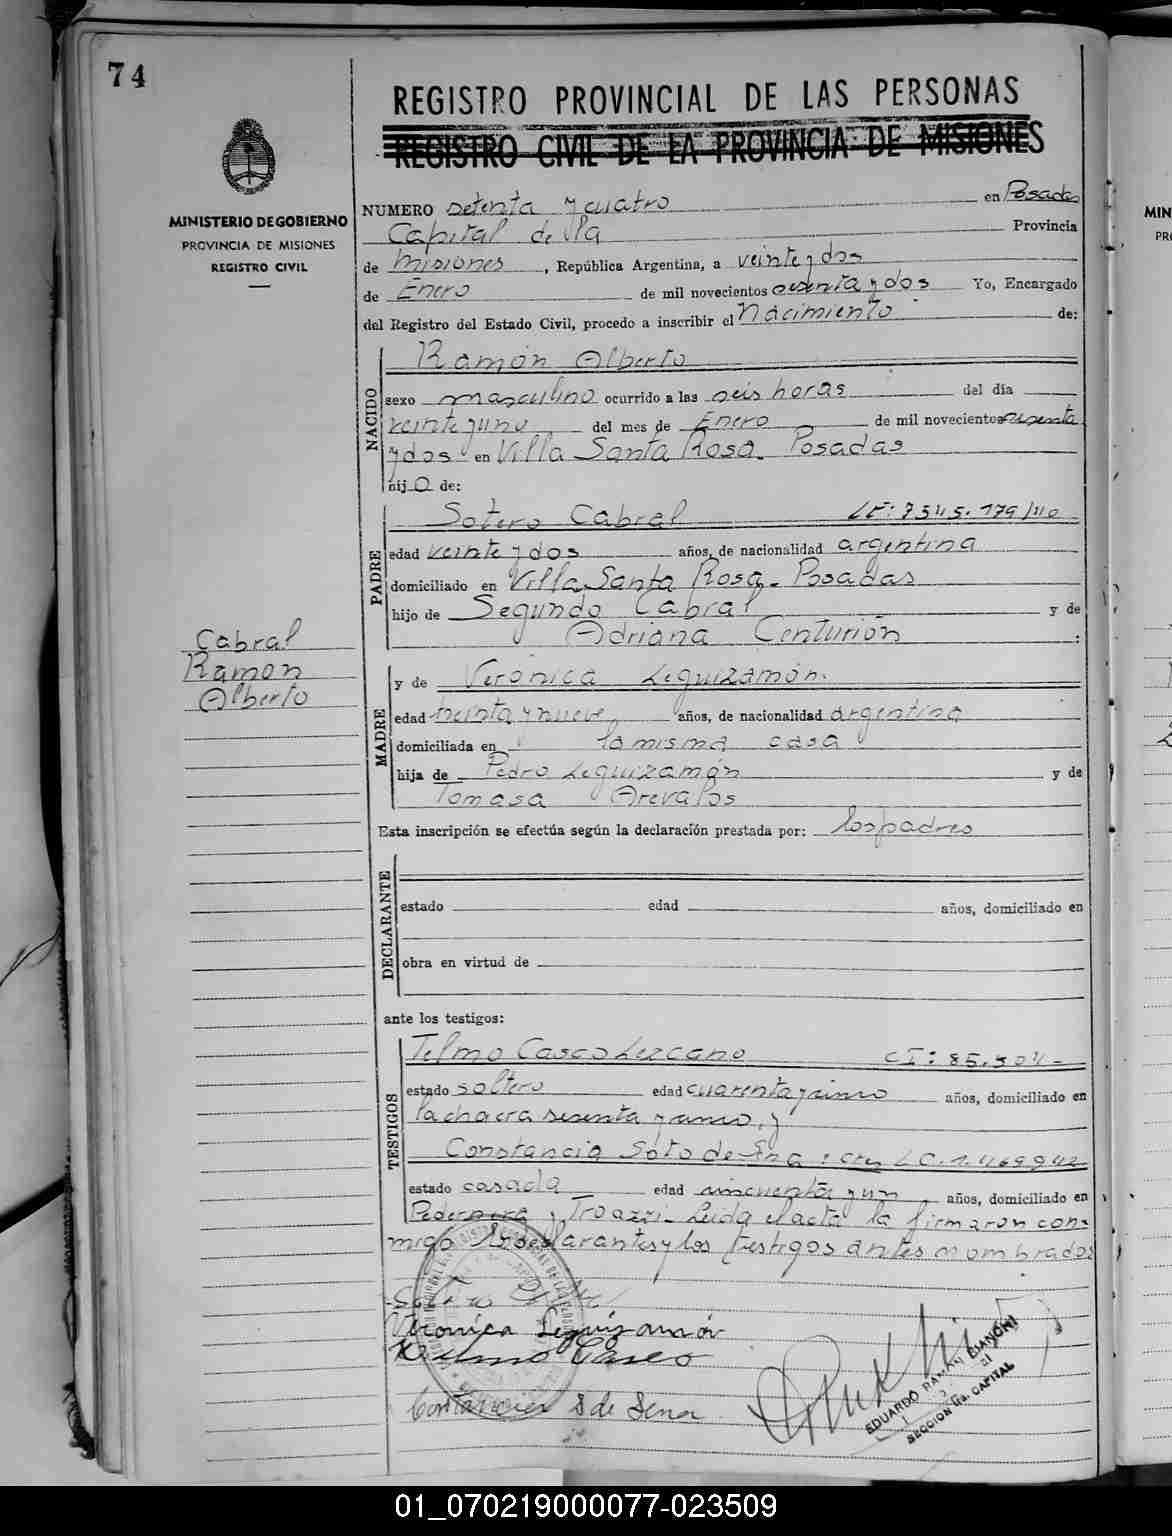 74
REGISTRO PROVINCIAL DE LAS PERSONAS
REGISTRO CIVIL DE LA PROVINCIA DE MISIONES
MINISTERIO DE GOBIERNO
PROVINCIA DE MISIONES
REGISTRO CIVIL
NUMERO setenta y cuatro en Posadas
Capital de la Provincia
de Misiones, República Argentina, a veinte y dos
de Enero de mil novecientos sesenta y dos Yo, Encargado
del Registro del Estado Civil, procedo a inscribir el Nacimiento de:
NACIDO
Ramón Alberto
sexo masculino ocurrido a las seis horas del día
veinte y uno del mes de Enero de mil novecientos sesenta
y dos en Villa Santa Rosa. Posadas
hijo de:
PADRE
Sotero Cabral LE: 7545.179/40
edad veinte y dos años, de nacionalidad argentina
domiciliado en Villa Santa Rosa - Posadas
hijo de Segundo Cabral y de
Adriana Centurión :
Cabral
Ramon
Alberto
MADRE
y de Verónica Leguizamón.
edad treinta y nueve años, de nacionalidad argentina
domiciliada en la misma casa
hija de Pedro Leguizamón y de
Tomasa Arevalos
Esta inscripción se efectúa según la declaración prestada por: los padres
DECLARANTE
estado edad años, domiciliado en
obra en virtud de
ante los testigos:
TESTIGOS
Telmo Casco Lezcano CI: 85.504-
estado soltero edad cuarenta y cinco años, domiciliado en
la chacra sesenta y cinco, y
Constancia Soto de LC.1.469942
estado casada edad cincuenta y un años, domiciliado en
Pedernera y Troazzi - Leida el acta la firmaron con-
migo los declarantes y los testigos antes nombrados
Verónica Leguizamón
Telmo Casco
Constancia S de Sena
EDUARDO RAMON BIANCHI
SECCION 1ra. CAPITAL
01_070219000077-023509